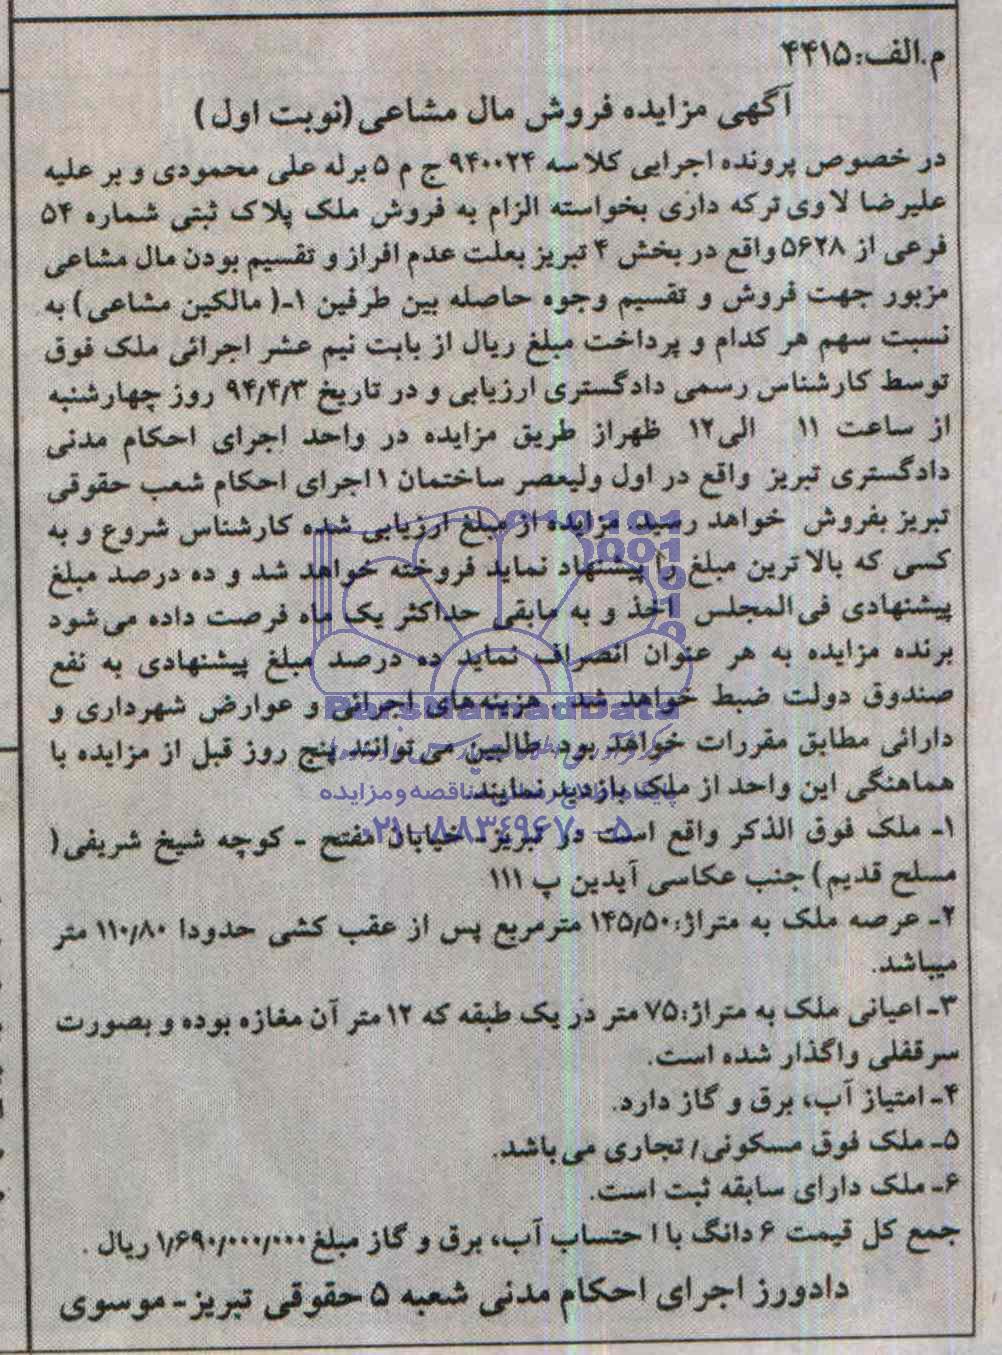 م.الف:۴۴۱۵
آگهی مزایده فروش مال مشاعی (نوبت اول)
در خصوص پرونده اجرایی کلاسه ۹۴۰۰۲۴ ج م ۵ برله علی محمودی و بر علیه
علیرضا لاوی ترکه داری بخواسته الزام به فروش ملک پلاک ثبتی شماره ۵۴
فرعی از ۵۶۲۸ واقع در بخش ۴ تبریز بعلت عدم افراز و تقسیم بودن مال مشاعی
مزبور جهت فروش و تقسیم وجوه حاصله بین طرفین ۱-( مالکین مشاعی) به
نسبت سهم هر کدام و پرداخت مبلغ ریال از بابت نیم عشر اجرائی ملک فوق
توسط کارشناس رسمی دادگستری ارزیابی و در تاریخ ۹۴/۴/۳ روز چهارشنبه
از ساعت ۱۱ الی ۱۲ ظهراز طریق مزایده در واحد اجرای احکام مدنی
دادگستری تبریز واقع در اول ولیعصر ساختمان ۱ اجرای احکام شعب حقوقی
تبریز بفروش خواهد رسید. مزایده از مبلغ ارزیابی شده کارشناس شروع و به
کسی که بالا ترین مبلغ را پیشنهاد نماید فروخته خواهد شد و ده درصد مبلغ
پیشنهادی فی المجلس اخذ و به مابقی حداکثر یک ماه فرصت داده می شود
برنده مزایده به هر عنوان انصراف نماید ده درصد مبلغ پیشنهادی به نفع
صندوق دولت ضبط خواهد شد. هزینه های اجرائی و عوارض شهرداری و
دارائی مطابق مقررات خواهد بود. طالبین می توانند پنج روز قبل از مزایده با
هماهنگی این واحد از ملک بازدید نمایند.
۱- ملک فوق الذکر واقع است در تبریز- خیابان مفتح - کوچه شیخ شریفی(
مسلح قدیم) جنب عکاسی آیدین پ ۱۱۱
۲- عرصه ملک به متراژ: ۱۴۵/۵۰ مترمربع پس از عقب کشی حدودا ۱۱۰/۸۰ متر
میباشد.
۳- اعیانی ملک به متراژ: ۷۵ متر در یک طبقه که ۱۲ متر آن مغازه بوده و بصورت
سرقفلی واگذار شده است.
۴- امتیاز آب، برق و گاز دارد.
۵- ملک فوق مسکونی/ تجاری می باشد.
۶- ملک دارای سابقه ثبت است.
جمع کل قیمت ۶ دانگ با ا حتساب آب، برق و گاز مبلغ ۱/۶۹۰/۰۰۰/۰۰۰ ریال .
دادورز اجرای احکام مدنی شعبه ۵ حقوقی تبریز - موسوی
ParsNamadData
پایگاه اطلاع رسانی مناقصه و مزایده
۰۲۱-۸۸۳۴۹۶۷۰-۵